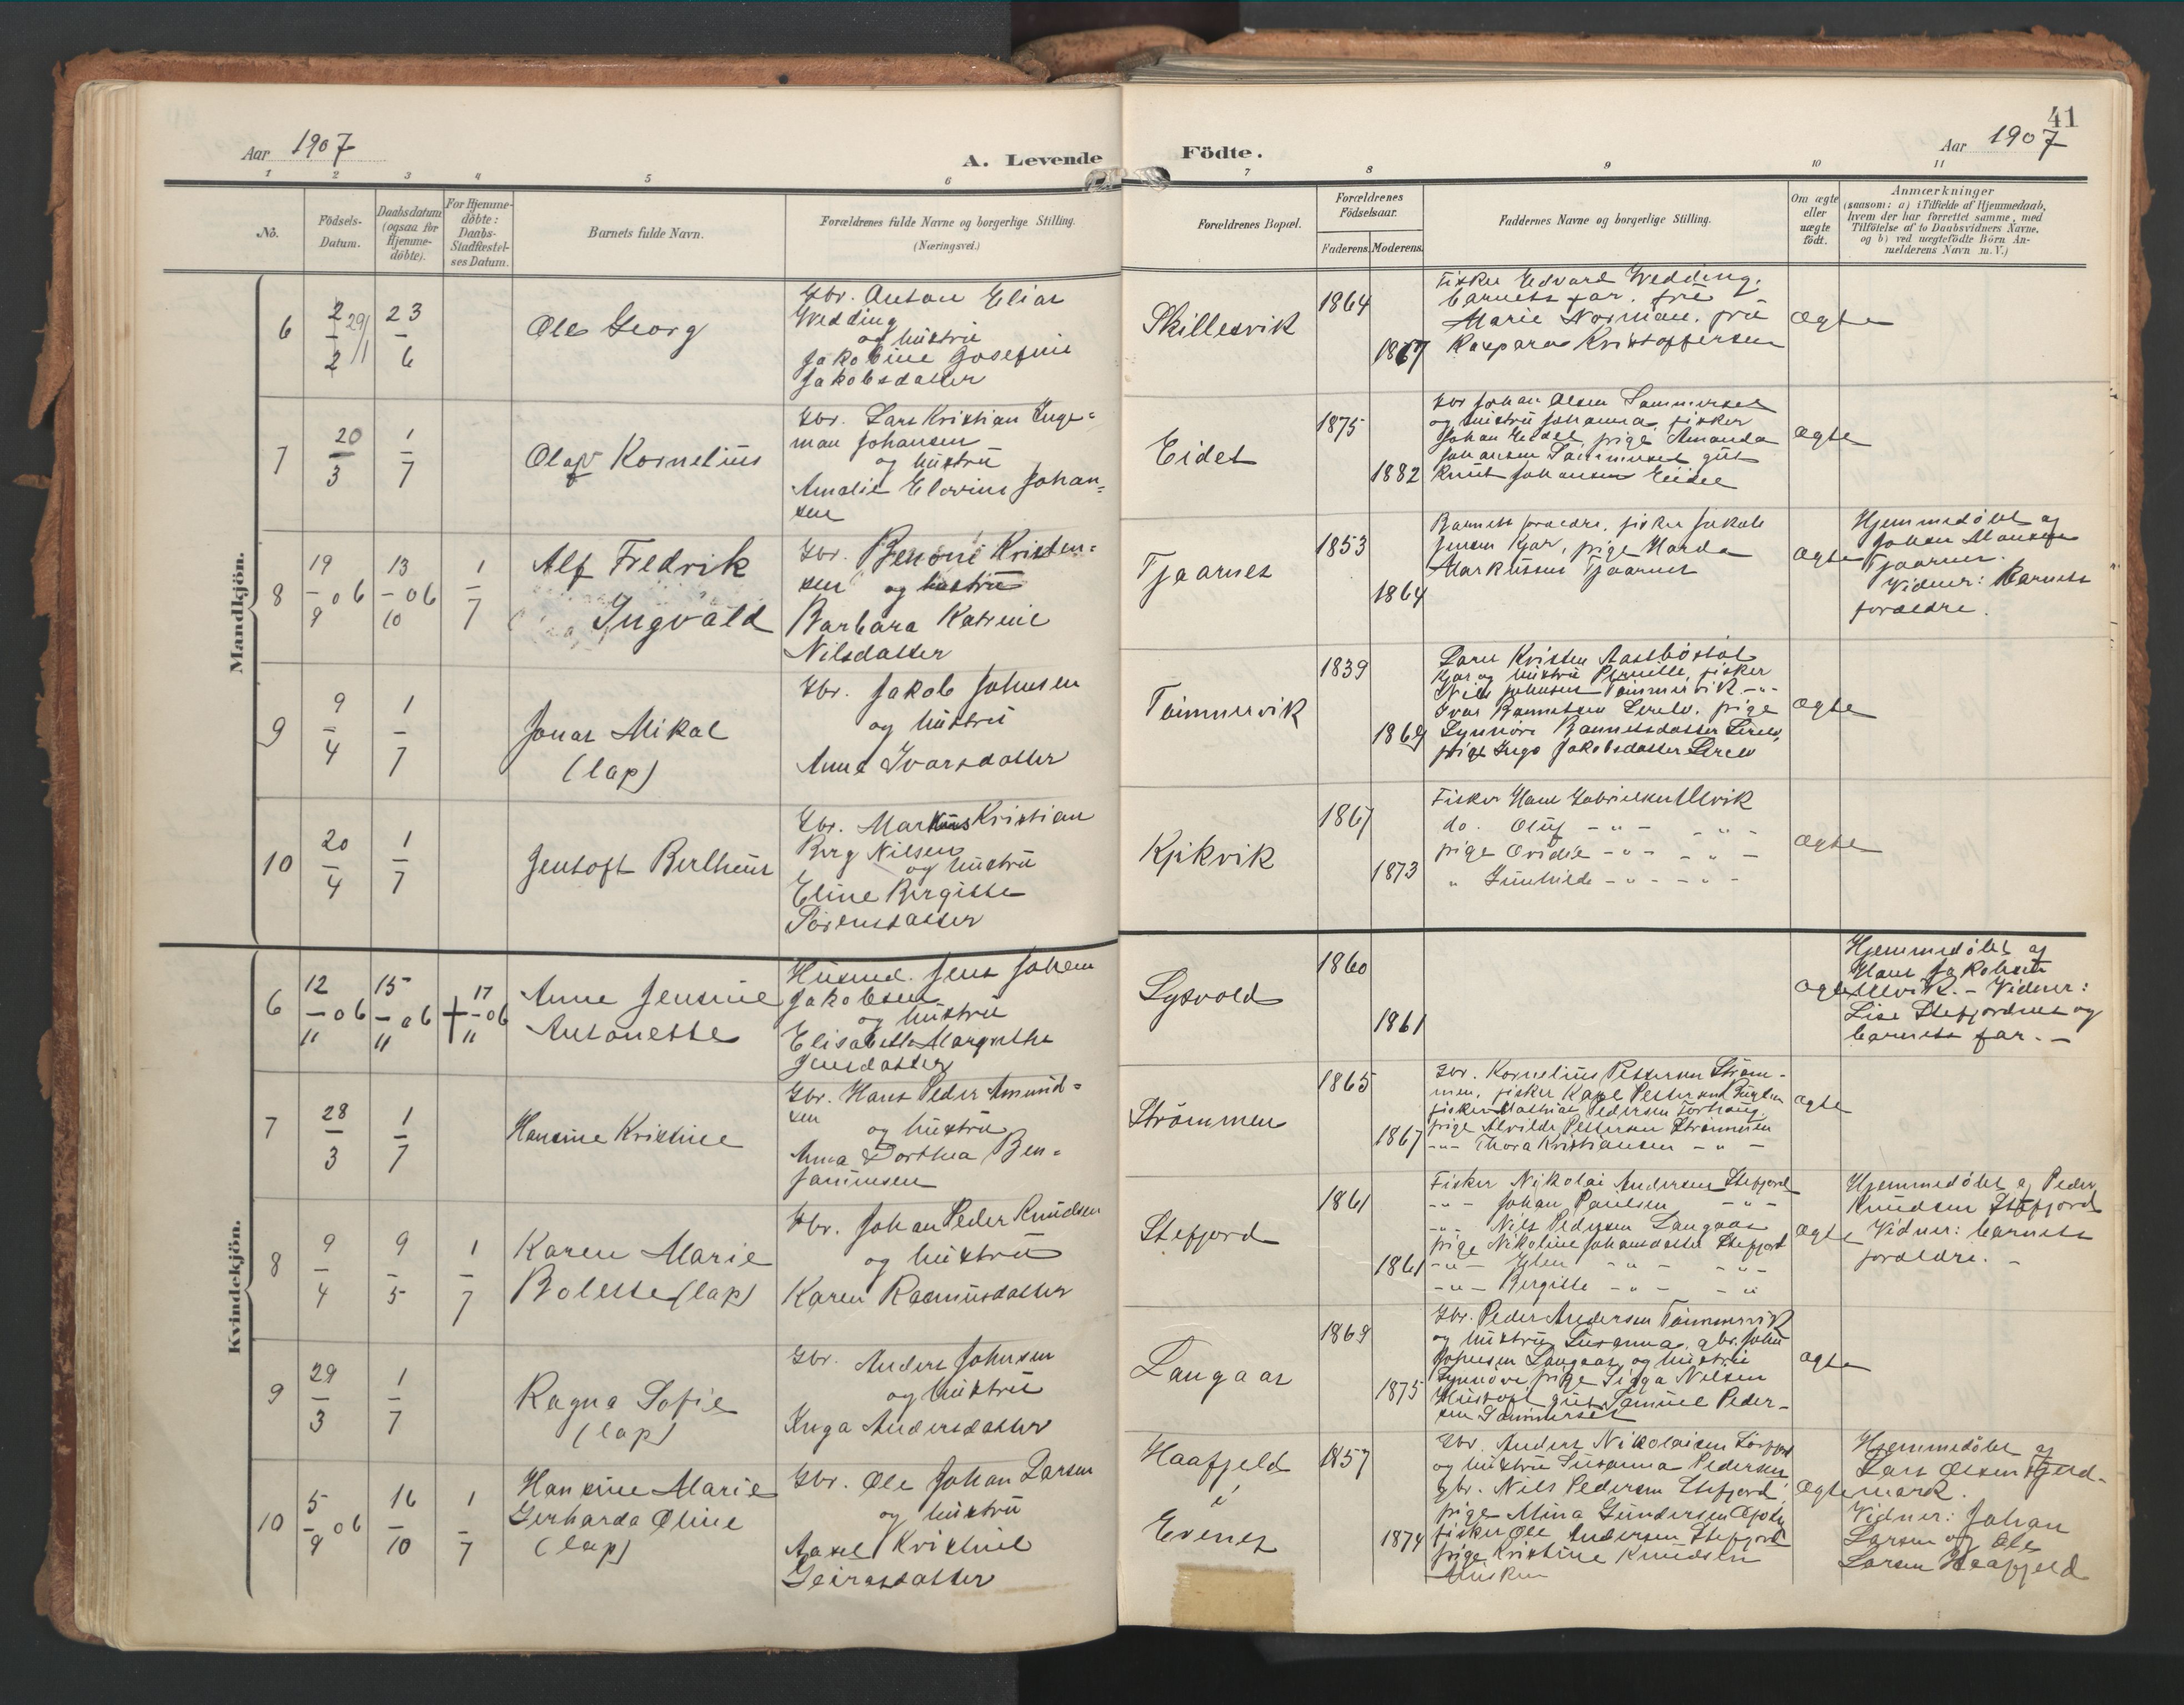 41
Aar 1907
A. Levende
Födte.
Aar 1907
1 2 3 4 5 6 7 8 9 10 11
No.
Födsels-
Datum.
Daabsdatum
(ogsaa for
Hjemme-
döbte).
For Hjemme-
döbte:
Daabs-
Stadfæstel-
ses Datum.
Barnets fulde Navn.
Forældrenes fulde Navne og borgerlige Stilling.
(Næringsvei.)
Forældrenes Bopæl.
Forældrenes
Födselsaar.
Faderens. Moderens.
Faddernes Navne og borgerlige Stilling.
Om ægte
eller
uægte
födt.
Anmærkninger
(saasom: a) i Tilfælde af Hjemmedaab,
hvem der har forrettet samme, med
Tilföielse af to Daabsvidners Navne,
og b) ved uægtefödte Börn An-
melderens Navn m. V.)
Mandkjön.
6
2/2 29/1
23/6
Ole Georg
Gbr. Anton Elias
Wedding
og hustru
Jakobine Josefine
Jakobsdatter
Skillesvik
1864
1867
Fisker Edvard Wedding,
barnets far, fru
Marie Norman, fru
Kaspara Kristoffersen
ægte
7
20/3
1/7
Olaf Kornelius
Gbr. Lars Kristian Inge-
man Johansen
og hustru
Amalie Elovine Johan-
sen
Eidet
1875
1882
Gbr Johan Olsen Sommerset
og hustru Johanna, fisker
Johan Eidet, pige Amanda
Johansen Sommerset, gut
Knut Johansen Eidet
ægte
8
19/9 06
13/10 06
1/7
Alf Fredrik
Ingvald
Gbr. Benoni Kristen-
sen og hustru
Barbara Katrine
Nilsdatter
Tjaarnes
1853
1864
Barnets forældre, fisker Jakob
Jensen Kjær, pige Harda
Markussen Tjaarnes
ægte
Hjemmedøbt af
Johan
Tjaarnes.
Vidner: Barnets
forældre.
9
9/4
1/7
Jonas Mikal
(lap)
Gbr. Jakob Johnsen
og hustru
Anna Ivarsdatter
Tømmervik
1839
1869
Kristen
og hustru Pernille, fisker
Nils Johnsen Tømmervik - " -
Ivar, pige
Synnøve
pige Inga Jakobsdatter
ægte
10
20/4
1/7
Jentoft Bertheus
Gbr. Markus Kristian
Berg Nilsen
og hustru
Eline Bergitte
Sørensdatter
Kjikvik
1867
1873
Fisker Hans Gabrielsen Ulvik
do. Oluf - " - - " -
pige Ovidie - " - - " -
" Gunhilde - " - - " -
ægte
Kvindekjön.
6
12/11 06
15/11 06
† 17/11 06
Anne Jensine
Antonette
Husmd. Jens Johan
Jakobsen
og hustru
Elisabeth Margrethe
Jensdatter
Lysvold
1860
1861
ægte
Hjemmedøbt af
Hans Jakobsen
Ulvik. - Vidner:
Lise Stefjordnes og
barnets far. -
7
28/3
1/7
Hansine Kristine
Gbr. Hans Peder Amund-
sen
og hustru
Anna Dorthea Ben-
jaminsen
Strømmen
1865
1867
Gbr. Kornelius Pettersen Strøm-
men, fisker Karl Pettersen
fisker Mathias Pedersen Forhaug,
pige Alvilde Pettersen Strømmen
- " - Thora Kristiansen - " -
ægte
8
9/4
9/5
1/7
Karen Marie
Bolette (lap)
Gbr. Johan Peder Knudsen
og hustru
Karen Rasmusdatter
Stefjord
1861
1861
Fisker Nikolai Andersen Stefjord
- " - Johan Paulsen - " -
- " - Nils Pedersen Langaas
pige Nikoline Johansdatter Stefjord
- " - Elen - " - - " -
- " - Bergitte - " - - " -
ægte
Hjemmedøbt af Peder
Knudsen Stefjord
Vidner: barnets
forældre. -
9
29/3
1/7
Ragna Sofie
(lap)
Gbr. Anders Johnsen
og hustru
Inga Andersdatter
Langaas
1869
1875
Gbr. Peder Andersen Tømmervik
og hustru Susanna, gbr. John
Johnsen Langaas og hustru
Synnøve, pige Sigga Nilsen
gut Samuel Peder-
sen Sommerset
ægte
10
5/9 06
16/10
1/7
Hansine Marie
Gerharda Oline
(lap)
Gbr. Ole Johan Larsen
og hustru
Aasel Kristine
Geirasdatter
Haafjeld
i
Evenes
1857
1874
Gbr. Anders Nikolaisen
og hustru Susanna Pedersen
gbr. Nils Pedersen Stefjord,
pige Mina Gundersen
fisker Ole Andersen Stefjord
pige Kristine Knudsen
ægte
Hjemmedøbt af
Lars Olsen Hjerd-
mark.
Vidner: Johan
Larsen og Ole
Larsen Haafjeld